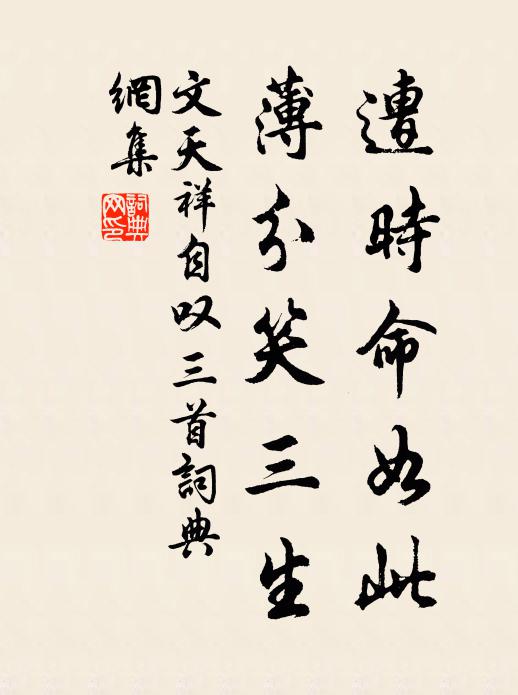 遭時命如此
薄分笑三生
文天祥自叹三首詞典
網集
詞典
网印